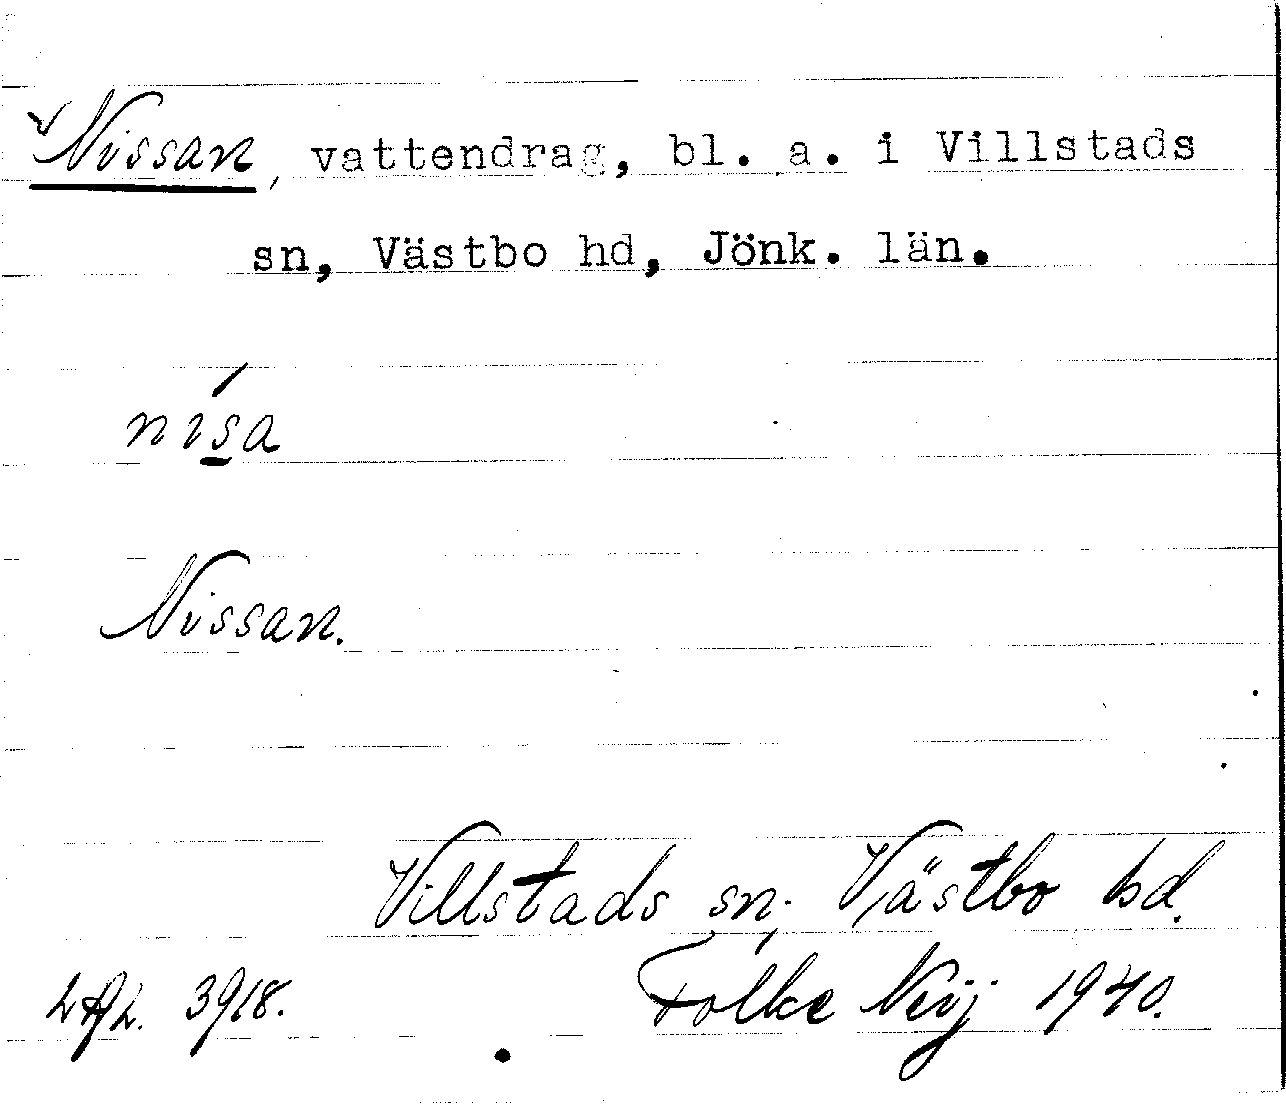 Nissan, vattendrag, bl. a. i Villstads
sn, Västbo hd, Jönk. län.
nísa
Nissan.
Villstads sn, Västbo hd.
3918. Folke Neij 1940.